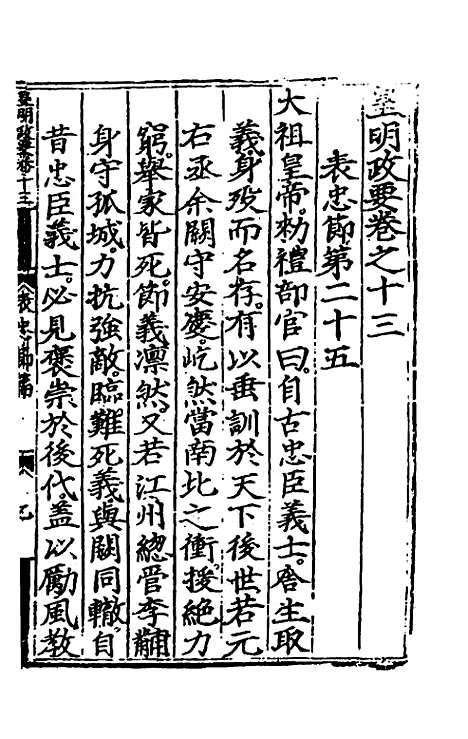 皇明政要卷之十三
表忠節第二十五
太祖皇帝。勑禮部官曰。自古忠臣義士。舍生取
義。身殁而名存。有以垂訓於天下後世。若元
右丞余闕守安慶。屹然當南北之衝。援絕力
窮。舉家皆死。節義凛然。又若江州總管李黼
身守孤城。力抗強敵。臨難死義。與闕同轍。自
昔忠臣義士。必見褒崇於後代。盖以勵風教
皇明政要卷十三
表忠節篇